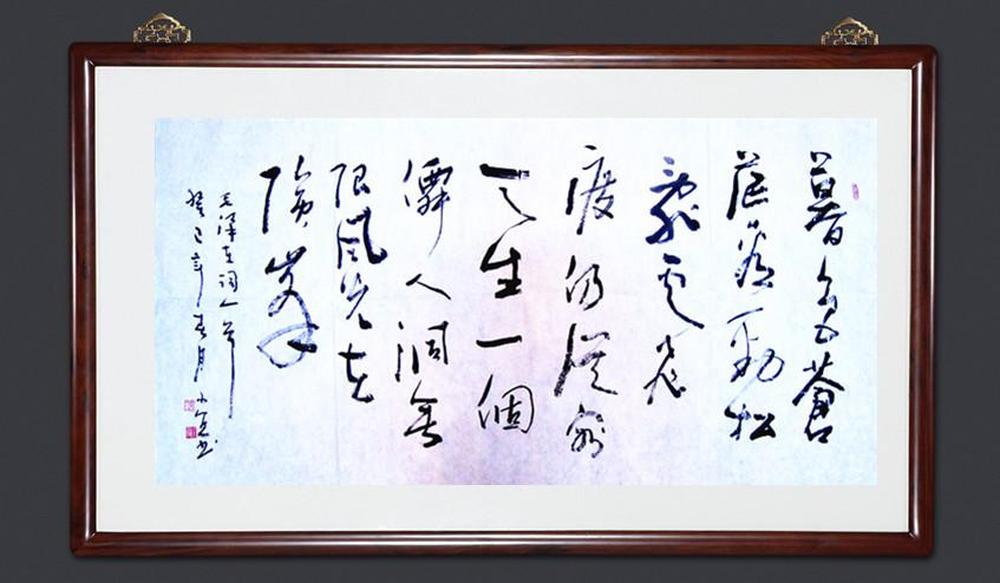 暮色蒼
茫看勁松
亂雲飛
渡仍從容
天生一個
僊人洞無
限風光在
險峯
毛澤東詞一首
癸巳年春月 小书